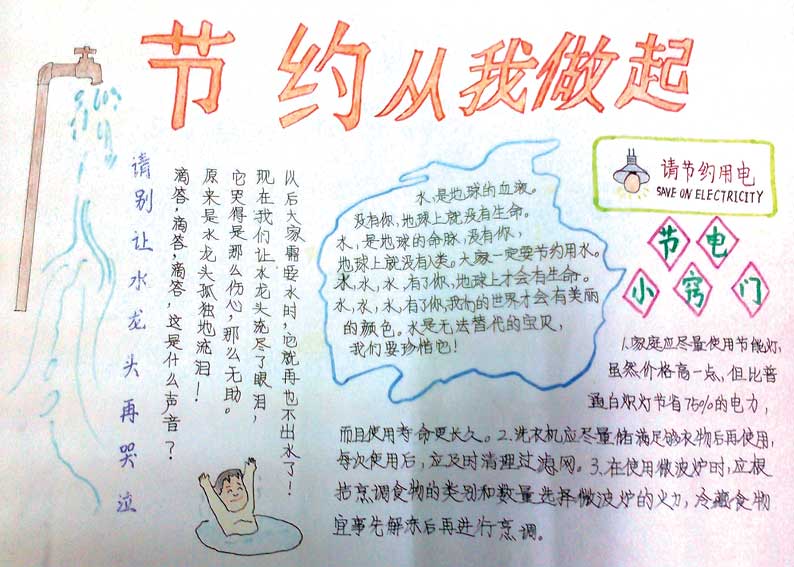 节约从我做起
请别让水龙头再哭泣
滴答，滴答，滴答，这是什么声音？
原来是水龙头孤独地流泪！
它哭得是那么伤心，那么无助。
现在我们让水龙头流尽了眼泪，
以后大家需要水时，它就再也不出水了！
水，是地球的血液。
没有你，地球上就没有生命。
水，是地球的命脉，没有你，
地球上就没有人类。大家一定要节约用水。
水，水，水，有了你，地球上才会有生命。
水，水，水，有了你，我们的世界才会有美丽
的颜色。水是无法替代的宝贝，
我们要珍惜它！
请节约用电
SAVE ON ELECTRICITY
节电
小窍门
1.家庭应尽量使用节能灯，
虽然价格高一点，但比普
通白炽灯节省75%的电力，
而且使用寿命更长久。2.洗衣机应尽量储满足够衣物后再使用，
每次使用后，应及时清理过滤网。3.在使用微波炉时，应根
据烹调食物的类别和数量选择微波炉的火力，冷藏食物
宜事先解冻后再进行烹调。